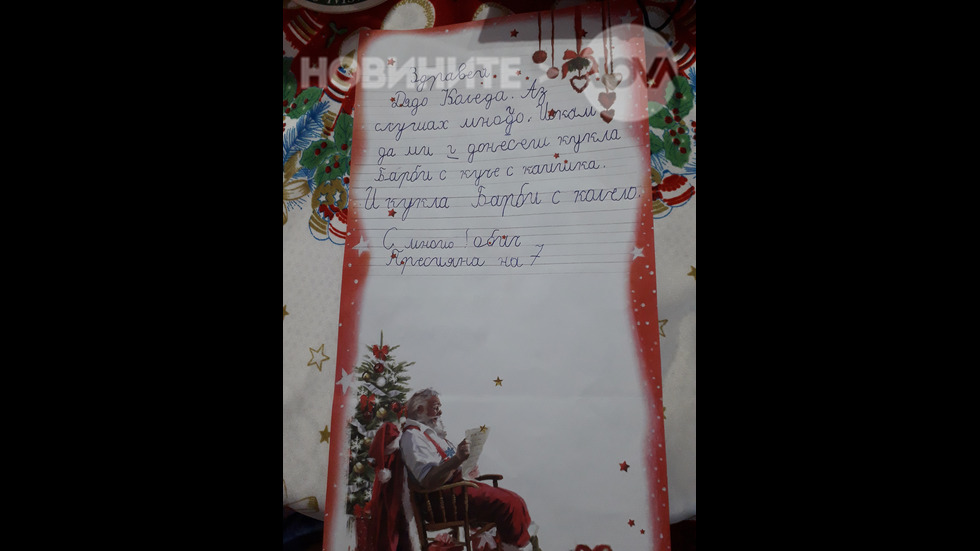 НОВИНИТЕ NOVA
Здравей
Дядо Коледа. Аз
слушах много. Искам
да ми г донесеш кукла
Барби с куче с каишка.
И кукла Барби с колело.
С много обич
Пресияна на 7